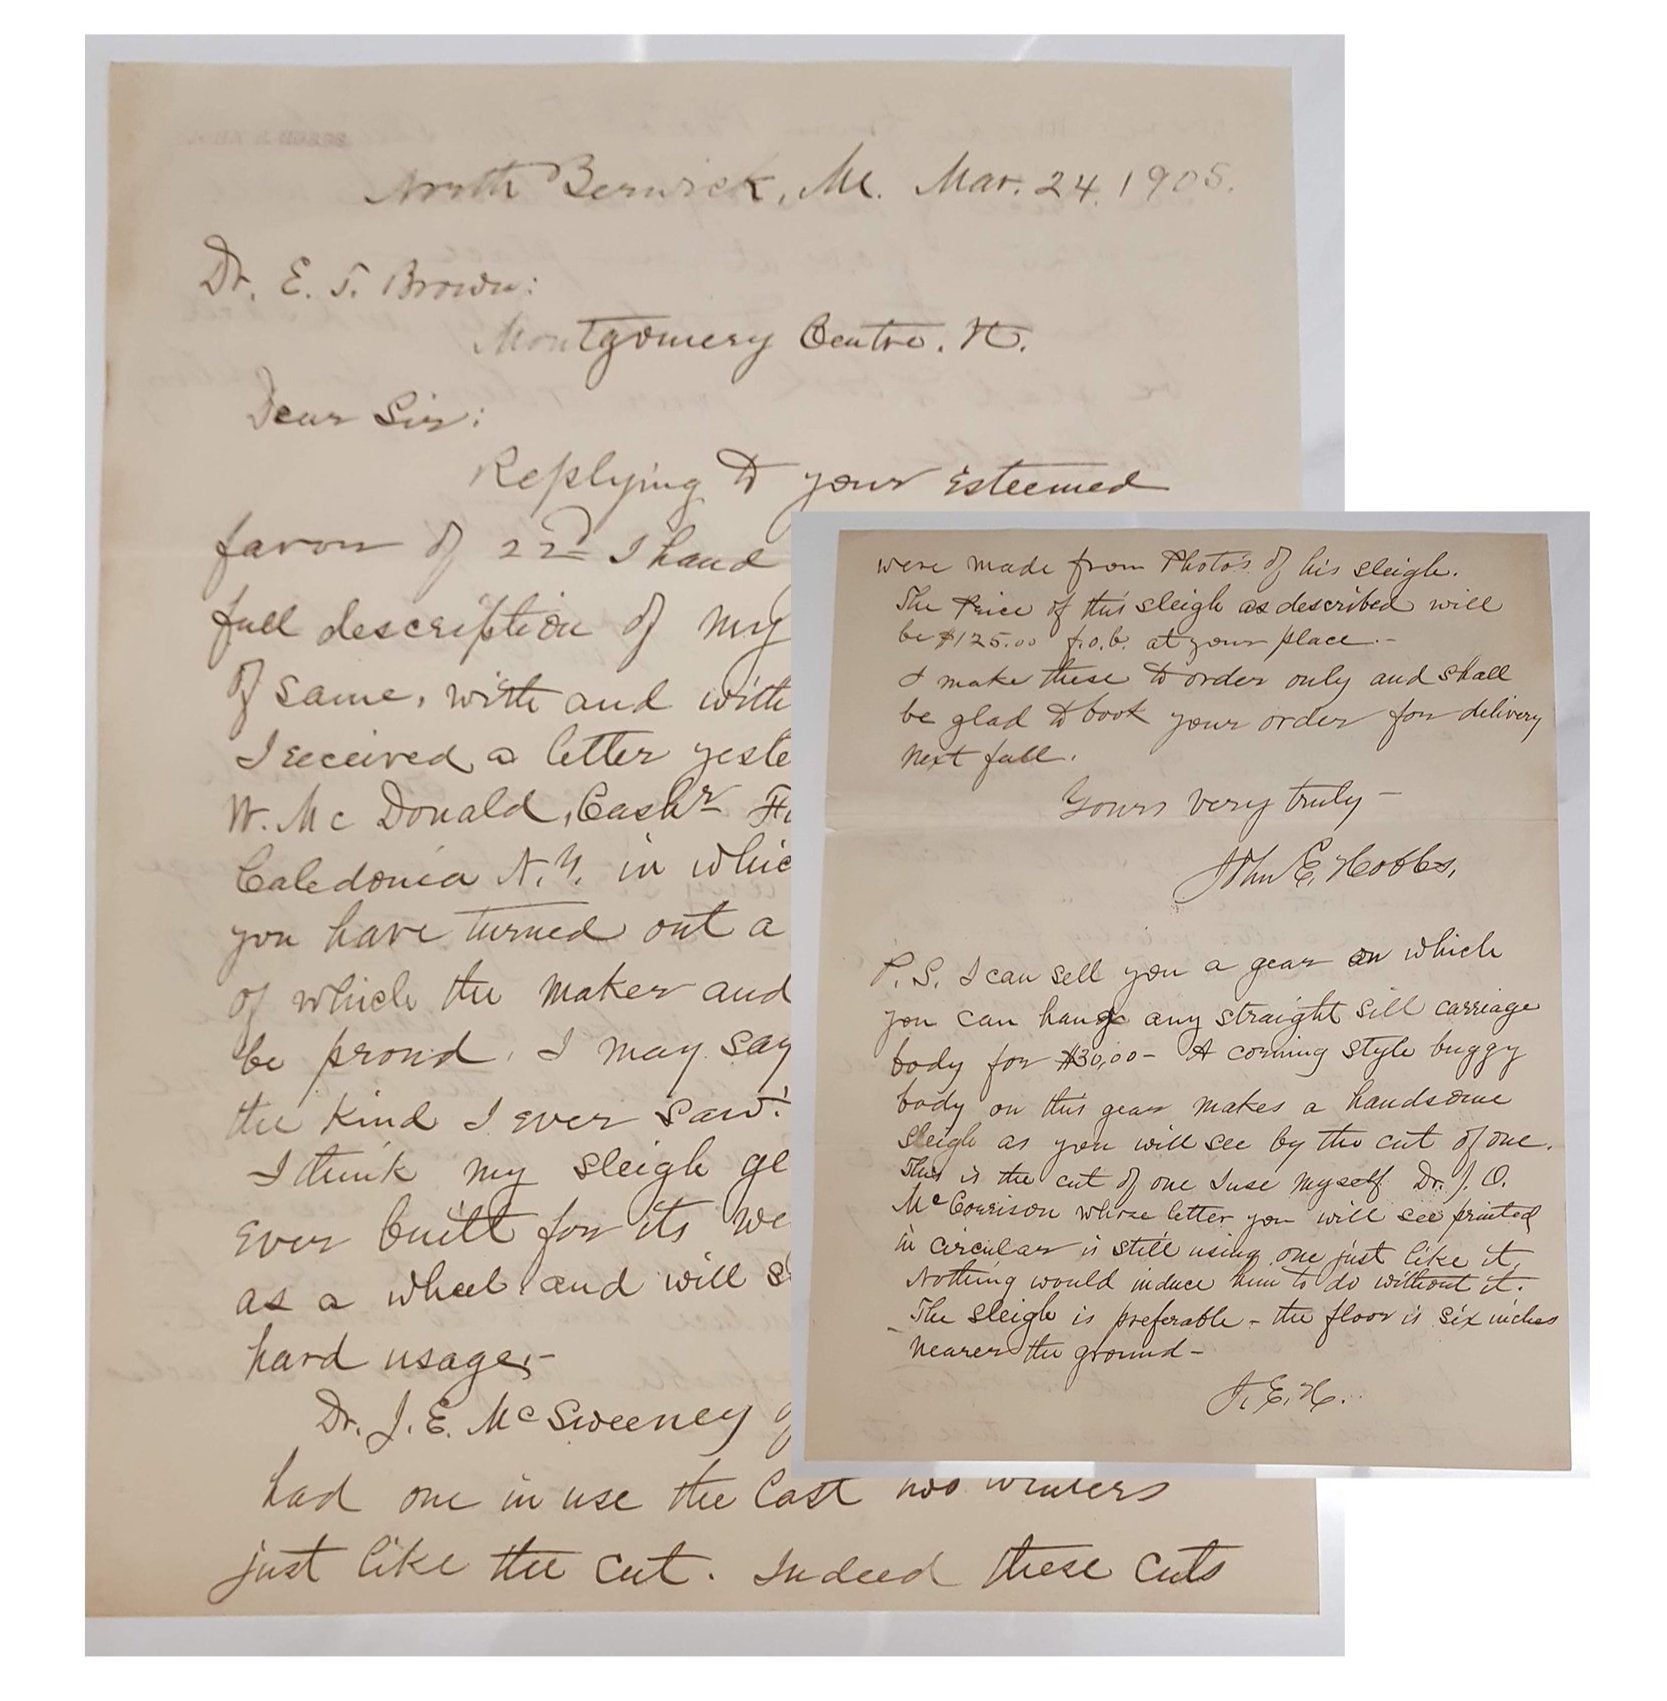 North Berwick, Me. Mar. 24. 1905.
Dr. E. S. Brown:
Montgomery Centre. Vt.
Dear Sir:
Replying to your esteemed
favor of 22nd I hand
full description of my
of same, with and with
I received a letter yeste
W. Mc Donald, Cashr
Caledonia N.Y. in whic
you have turned out a
of which the maker and
be proud. I may say
the kind I ever saw."
I think my sleigh ge
ever built for its we
as a wheel and will s
hard usage.-
Dr. J. E. McSweeney
had one in use the last two winters
just like the cut. Indeed these cuts
were made from Photo's of his sleigh.
The Price of this sleigh as described will
be $125.00 f.o.b. at your place.-
I make these to order only and shall
be glad to book your order for delivery
next fall.
Yours very truly-
John E. Hobbs,
P.S. I can sell you a gear on which
you can hang any straight sill carriage
body for $30.00- A corning style buggy
body on this gear makes a handsome
sleigh as you will see by the cut of one.
This is the cut of one I use myself. Dr. J. O.
McCorrison whose letter you will see printed
in circular is still using one just like it,
Nothing would induce him to do without it.
The sleigh is preferable - the floor is six inches
nearer the ground-
J. E. H.